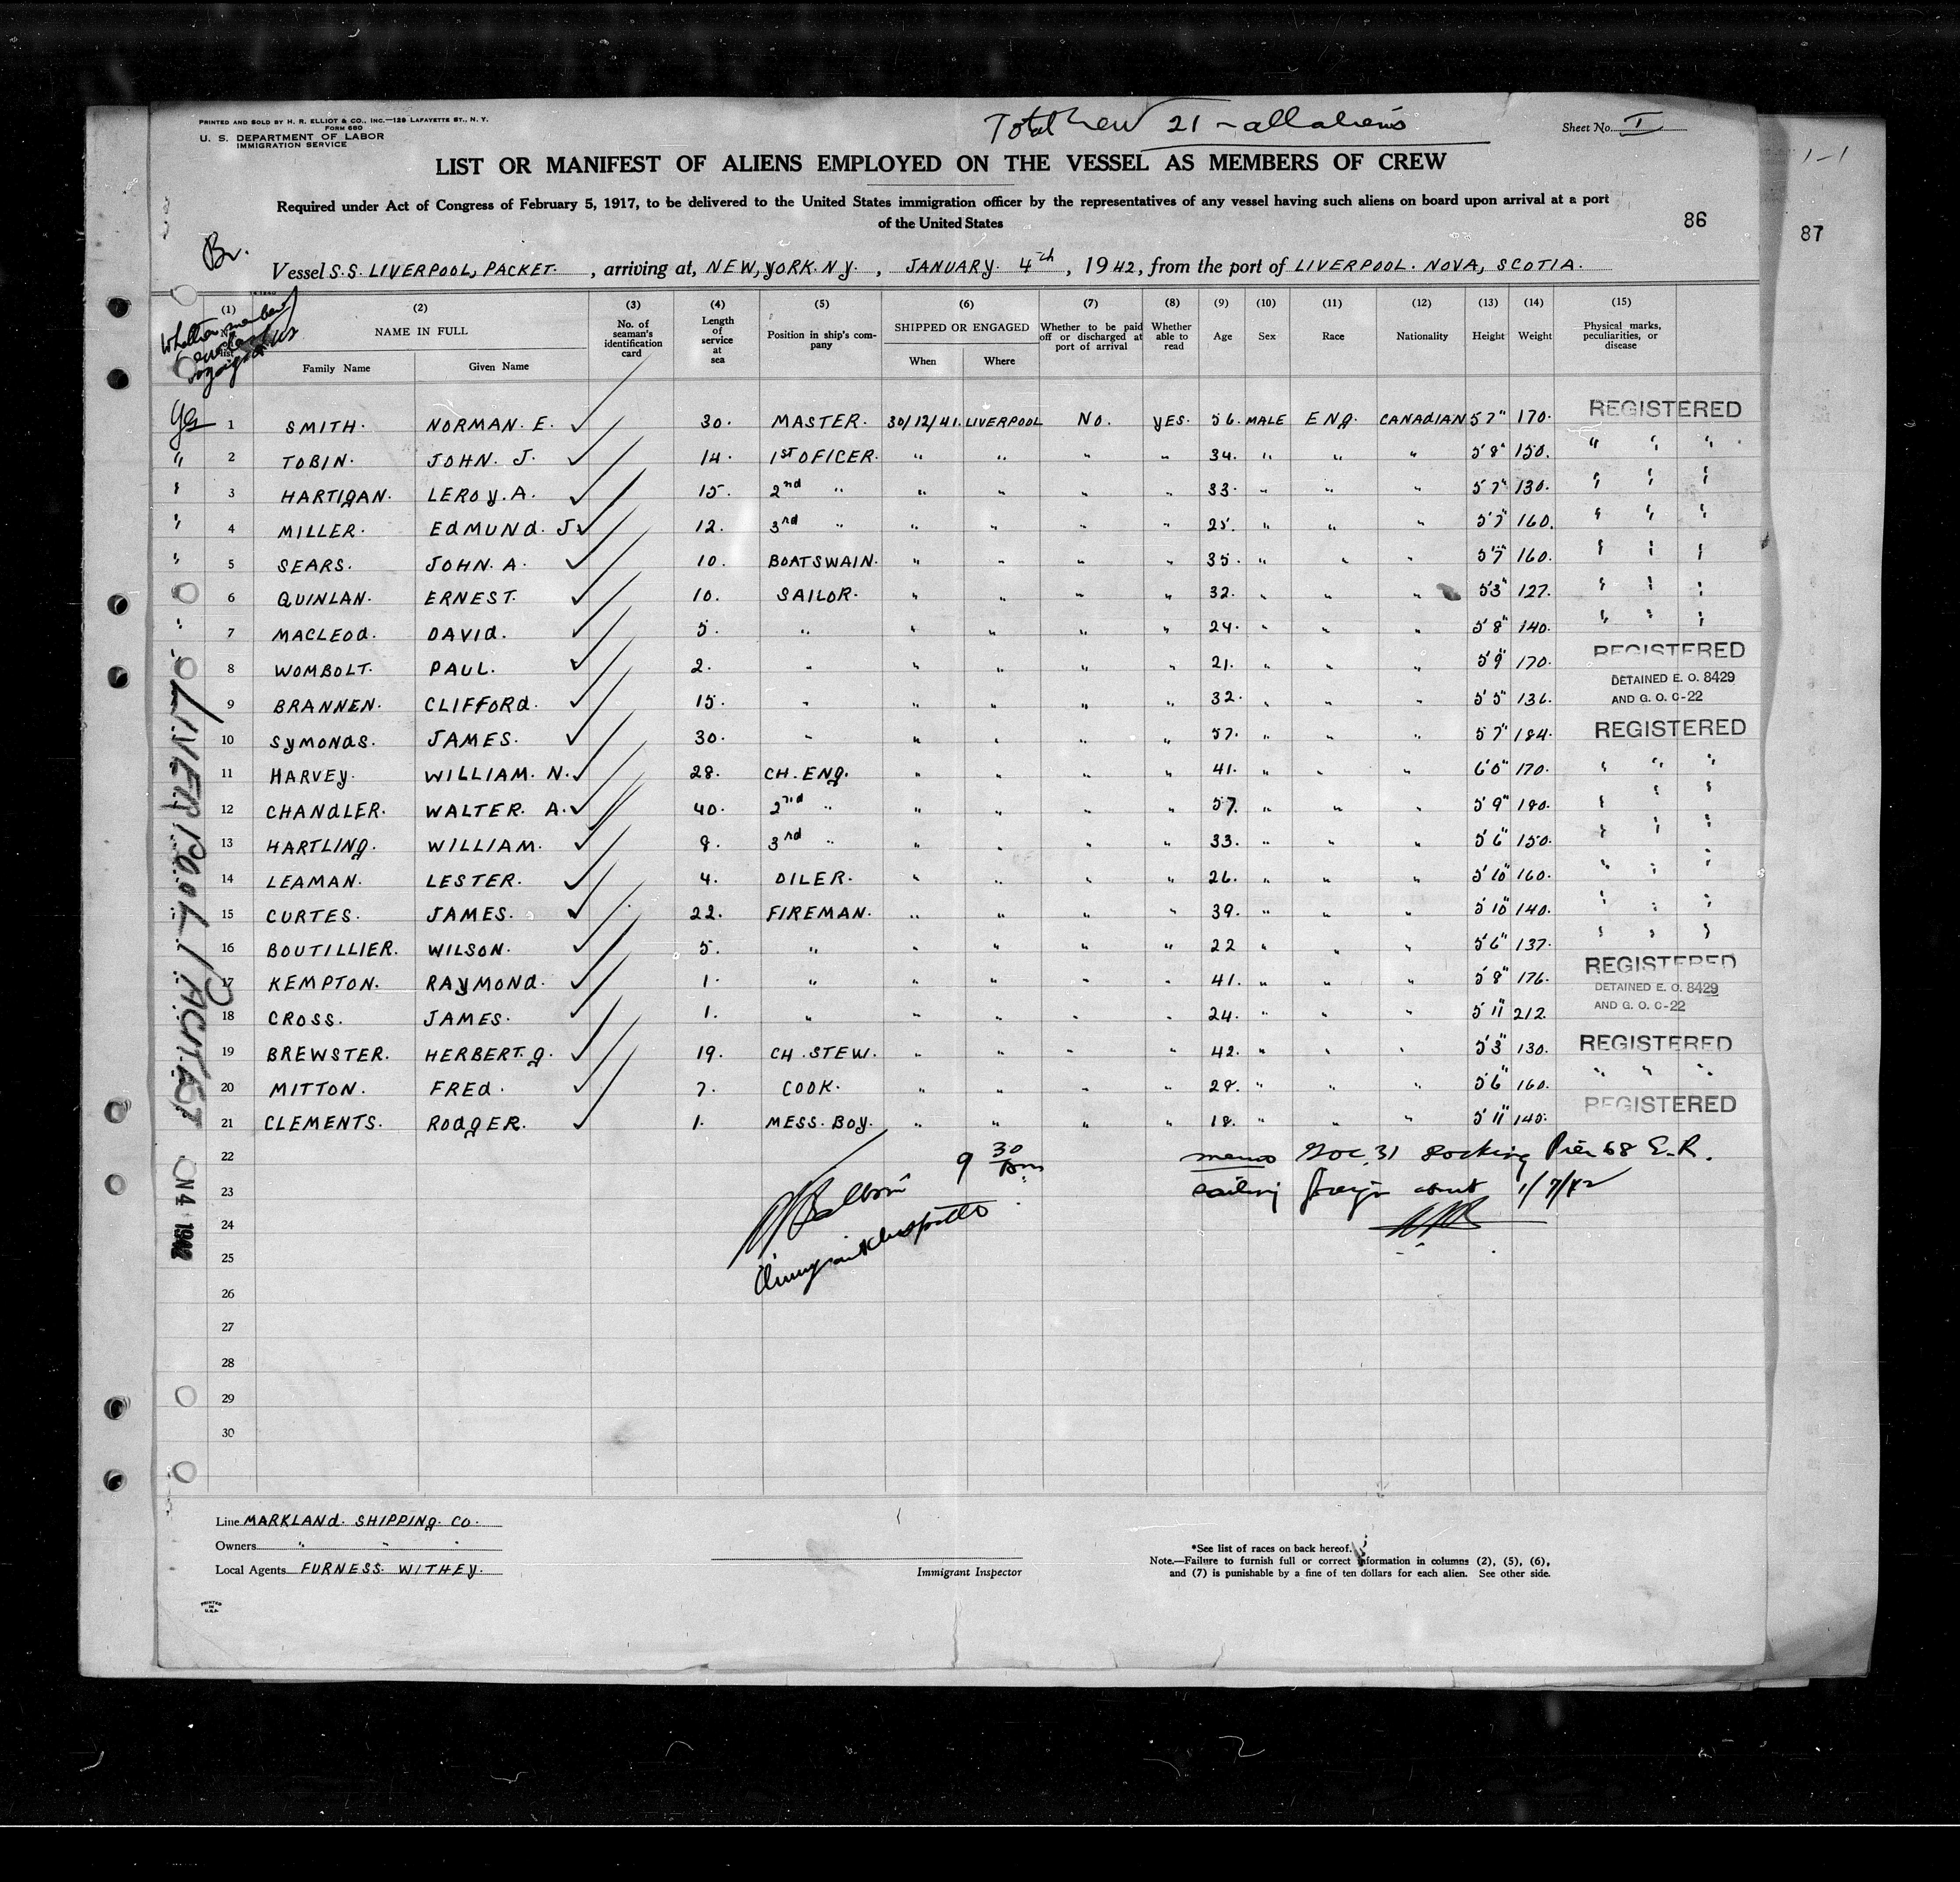 PRINTED AND SOLD BY H. R. ELLIOT & CO., INC.—129 LAFAYETTE ST., N. Y.
FORM 680
U. S. DEPARTMENT OF LABOR
IMMIGRATION SERVICE
Total Crew 21 - all aliens
Sheet No. I
1-1
LIST OR MANIFEST OF ALIENS EMPLOYED ON THE VESSEL AS MEMBERS OF CREW
Required under Act of Congress of February 5, 1917, to be delivered to the United States immigration officer by the representatives of any vessel having such aliens on board upon arrival at a port
of the United States
86
87
Br.
Vessel S.S. LIVERPOOL, PACKET. , arriving at, NEW, YORK. N.Y. , JANUARY. 4th , 1942, from the port of LIVERPOOL. NOVA, SCOTIA.
(1) (2) (3) (4) (5) (6) (7) (8) (9) (10) (11) (12) (13) (14) (15)
Whether member
NAME IN FULL
Family Name Given Name
No. of seaman's identification card
Length of service at sea
Position in ship's company
SHIPPED OR ENGAGED
When Where
Whether to be paid off or discharged at port of arrival
Whether able to read
Age Sex Race Nationality Height Weight
Physical marks, peculiarities, or disease
Yes 1 SMITH. NORMAN. E. 30. MASTER. 30/12/41. LIVERPOOL No. YES. 56. MALE ENG. CANADIAN 5'7" 170. REGISTERED
" 2 TOBIN. JOHN. J. 14. 1ST OFICER. " " " " 34. " " " 5'8" 150. " " "
" 3 HARTIGAN. LEROY. A. 15. 2nd " " " " " 33. " " " 5'7" 130. " " "
" 4 MILLER. EDMUND. J. 12. 3rd " " " " " 25. " " " 5'7" 160. " " "
" 5 SEARS. JOHN. A. 10. BOATSWAIN. " " " " 35. " " " 5'7" 160. " " "
6 QUINLAN. ERNEST. 10. SAILOR. " " " " 32. " " " 5'3" 127. " " "
" 7 MACLEOD. DAVID. 5. " " " " " 24. " " " 5'8" 140. " " "
" 8 WOMBOLT. PAUL. 2. " " " " " 21. " " " 5'9" 170. REGISTERED
DETAINED E. O. 8429
9 BRANNEN. CLIFFORD. 15. " " " " " 32. " " " 5'5" 136. AND G. O. C-22
10 SYMONDS. JAMES. 30. " " " " " 57. " " " 5'7" 184. REGISTERED
11 HARVEY. WILLIAM. N. 28. CH. ENG. " " " " 41. " " " 6'0" 170. " " "
12 CHANDLER. WALTER. A. 40. 2nd " " " " " 57. " " " 5'9" 180. " " "
13 HARTLING. WILLIAM. 8. 3rd " " " " " 33. " " " 5'6" 150. " " "
14 LEAMAN. LESTER. 4. OILER. " " " " 26. " " " 5'10" 160. " " "
15 CURTES. JAMES. 22. FIREMAN. " " " " 39. " " " 5'10" 140. " " "
16 BOUTILLIER. WILSON. 5. " " " " " 22 " " " 5'6" 137. " " "
17 KEMPTON. RAYMOND. 1. " " " " " 41. " " " 5'8" 176. REGISTERED
DETAINED E. O. 8429
18 CROSS. JAMES. 1. " " " " " 24. " " " 5'11" 212. AND G. O. C-22
19 BREWSTER. HERBERT. G. 19. CH. STEW. " " " " 42. " " " 5'3" 130. REGISTERED
20 MITTON. FRED. 7. COOK. " " " " 28. " " " 5'6" 160. " " "
21 CLEMENTS. RODGER. 1. MESS. BOY. " " " " 18. " " " 5'11" 140. REGISTERED
22 9 30 memo docking Pier 68 E.R.
23 sailing foreign about 1/7/42
24
25
26
27
28
29
30
LIVERPOOL PACKET
JAN 4 1942
Line MARKLAND. SHIPPING. CO.
Owners " " "
Local Agents FURNESS. WITHEY.
Immigrant Inspector
*See list of races on back hereof.
Note.—Failure to furnish full or correct information in columns (2), (5), (6),
and (7) is punishable by a fine of ten dollars for each alien. See other side.
PRINTED IN U.S.A.